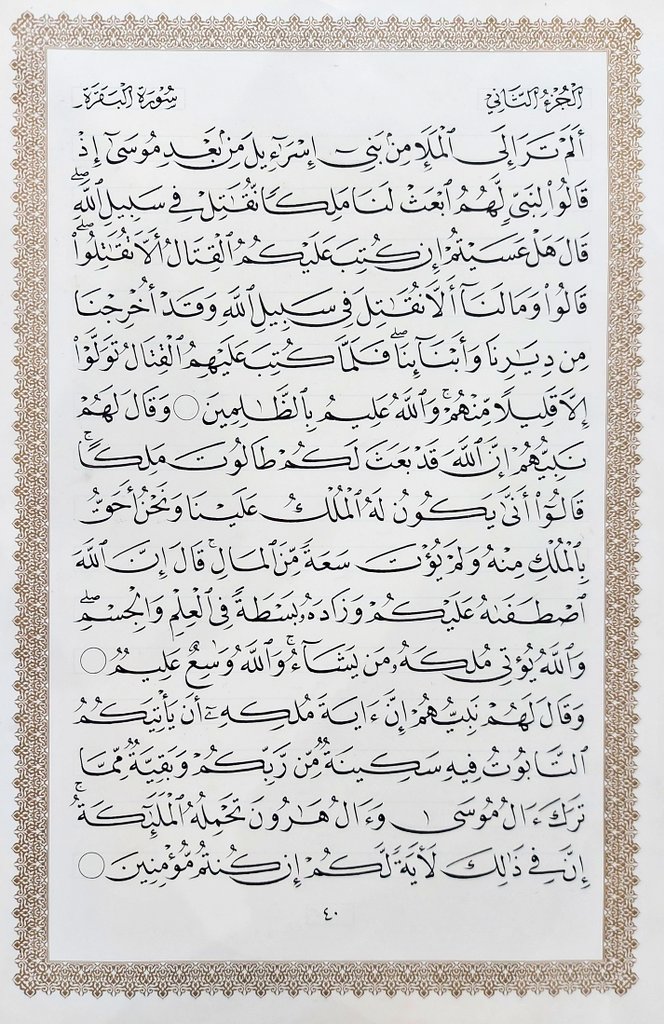 الجُزْءُ الثَّانِي
سُورَةُ البَقَرَةِ
أَلَمْ تَرَ إِلَى ٱلْمَلَإِ مِنۢ بَنِىٓ إِسْرَٰٓءِيلَ مِنۢ بَعْدِ مُوسَىٰٓ إِذْ
قَالُوا۟ لِنَبِىٍّ لَّهُمُ ٱبْعَثْ لَنَا مَلِكًا نُّقَٰتِلْ فِى سَبِيلِ ٱللَّهِ ۖ
قَالَ هَلْ عَسَيْتُمْ إِن كُتِبَ عَلَيْكُمُ ٱلْقِتَالُ أَلَّا تُقَٰتِلُوا۟ ۖ
قَالُوا۟ وَمَا لَنَآ أَلَّا نُقَٰتِلَ فِى سَبِيلِ ٱللَّهِ وَقَدْ أُخْرِجْنَا
مِن دِيَٰرِنَا وَأَبْنَآئِنَا ۖ فَلَمَّا كُتِبَ عَلَيْهِمُ ٱلْقِتَالُ تَوَلَّوْا۟
إِلَّا قَلِيلًا مِّنْهُمْ ۗ وَٱللَّهُ عَلِيمٌۢ بِٱلظَّٰلِمِينَ ۝ وَقَالَ لَهُمْ
نَبِيُّهُمْ إِنَّ ٱللَّهَ قَدْ بَعَثَ لَكُمْ طَالُوتَ مَلِكًا ۚ
قَالُوٓا۟ أَنَّىٰ يَكُونُ لَهُ ٱلْمُلْكُ عَلَيْنَا وَنَحْنُ أَحَقُّ
بِٱلْمُلْكِ مِنْهُ وَلَمْ يُؤْتَ سَعَةً مِّنَ ٱلْمَالِ ۚ قَالَ إِنَّ ٱللَّهَ
ٱصْطَفَىٰهُ عَلَيْكُمْ وَزَادَهُۥ بَسْطَةً فِى ٱلْعِلْمِ وَٱلْجِسْمِ ۖ
وَٱللَّهُ يُؤْتِى مُلْكَهُۥ مَن يَشَآءُ ۚ وَٱللَّهُ وَٰسِعٌ عَلِيمٌ ۝
وَقَالَ لَهُمْ نَبِيُّهُمْ إِنَّ ءَايَةَ مُلْكِهِۦٓ أَن يَأْتِيَكُمُ
ٱلتَّابُوتُ فِيهِ سَكِينَةٌ مِّن رَّبِّكُمْ وَبَقِيَّةٌ مِّمَّا
تَرَكَ ءَالُ مُوسَىٰ وَءَالُ هَٰرُونَ تَحْمِلُهُ ٱلْمَلَٰٓئِكَةُ ۚ
إِنَّ فِى ذَٰلِكَ لَءَايَةً لَّكُمْ إِن كُنتُم مُّؤْمِنِينَ ۝
٤٠